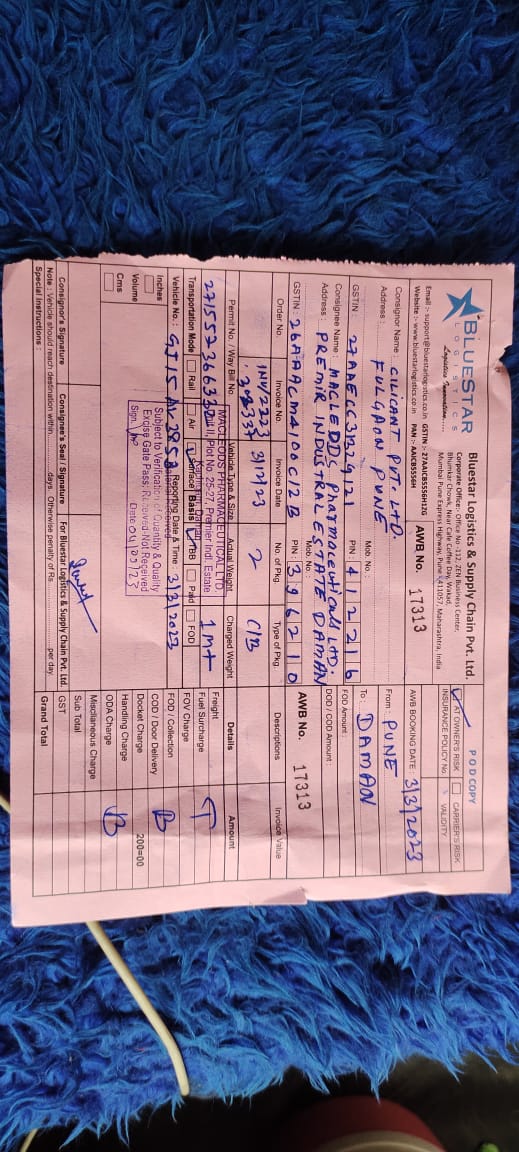 BLUESTAR
LOGISTICS
Logistics Innovation......
Bluestar Logistics & Supply Chain Pvt. Ltd.
Corporate Office: Office No -112, ZEN Business Center,
Bhumkar Chowk, Near Cafe Coffee Day, Wakad,
Mumbai Pune Express Highway, Pune 411057, Maharashtra, India
Email :- support@bluestarlogistics.co.in GSTIN :- 27AAICB5556H1ZG
Website :- www.bluestarlogistics.co.in PAN :- AAICB5556H
AWB No. 17313
POD COPY
AT OWNER'S RISK CARRIER'S RISK
INSURANCE POLICY No. VALIDITY
AWB BOOKING DATE : 3/3/2023
From : PUNE
To : DAMAN
FOD Amount :
DOD / COD Amount :
AWB No. 17313
Consignor Name : CILICANT PVT. LTD.
Address : FULGAON PUNE
Mob. No. :
GSTIN : PIN 412216
Consignee Name : MACLEODS PharmaceuticalS LTD.
Address : PREMIR INDUSTRAL ESTATE DAMAN
Mob. No. :
GSTIN : 26AAACM4100C2B PIN : 396210
Order No. Invoice No. Invoice Date No. of Pkg. Type of Pkg. Descriptions Invoice Value
3/2/23 2 C/B
Permit No. / Way Bill No. Vehicle Type & Size Actual Weight Charged Weight Details Amount
1 Mt
MACLEODS PHARMACEUTICAL LTD.
Plot No. 25-27, Premier Indl. Estate
Transportation Mode Rail Air Surface Basis TBB Paid FOD
Vehicle No. : GJ15 Reporting Date & Time : 3/3/2023
Subject to Verification of Quantity & Quality
Excise Gate Pass: Received/Not Received
Sign. Date 04/03/23
Inches
Volume
Cms
Freight
Fuel Surcharge T
FOV Charge
FOD / Collection
COD / Door Delivery B
Docket Charge 200=00
Handling Charge
ODA Charge B
Miscllaneous Charge
Sub Total
GST
Grand Total
Consignor's Signature Consignee's Seal / Signature For Bluestar Logistics & Supply Chain Pvt. Ltd.
Note : Vehicle should reach destination within............days. Otherwise penalty of Rs.............per day.
Special Instructions :